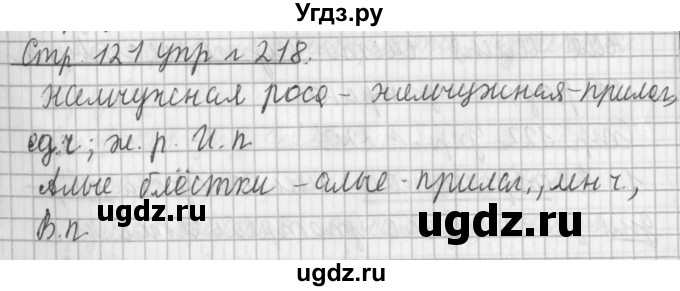 Угдз.ру
Стр. 121 упр. 218.
Жемчужная роса – жемчужная – прилаг,
ед.ч; ж. р. И. п.
Алые блёстки – алые – прилаг., мн ч.,
В.п.
ugdz.ru
ugdz.ru
ugdz.ru